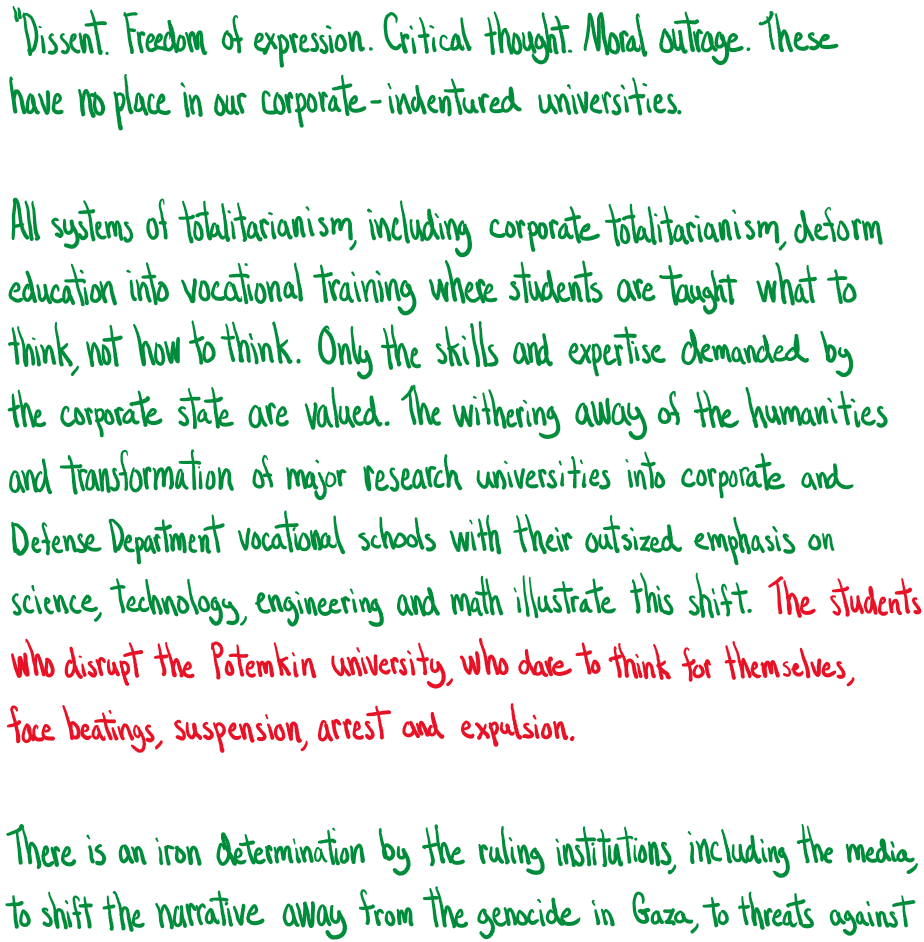 "Dissent. Freedom of expression. Critical thought. Moral outrage. These
have no place in our corporate-indentured universities.
All systems of totalitarianism, including corporate totalitarianism, deform
education into vocational training where students are taught what to
think, not how to think. Only the skills and expertise demanded by
the corporate state are valued. The withering away of the humanities
and transformation of major research universities into corporate and
Defense Department vocational schools with their outsized emphasis on
science, technology, engineering and math illustrate this shift. The students
who disrupt the Potemkin university, who dare to think for themselves,
face beatings, suspension, arrest and expulsion.
There is an iron determination by the ruling institutions, including the media,
to shift the narrative away from the genocide in Gaza, to threats against